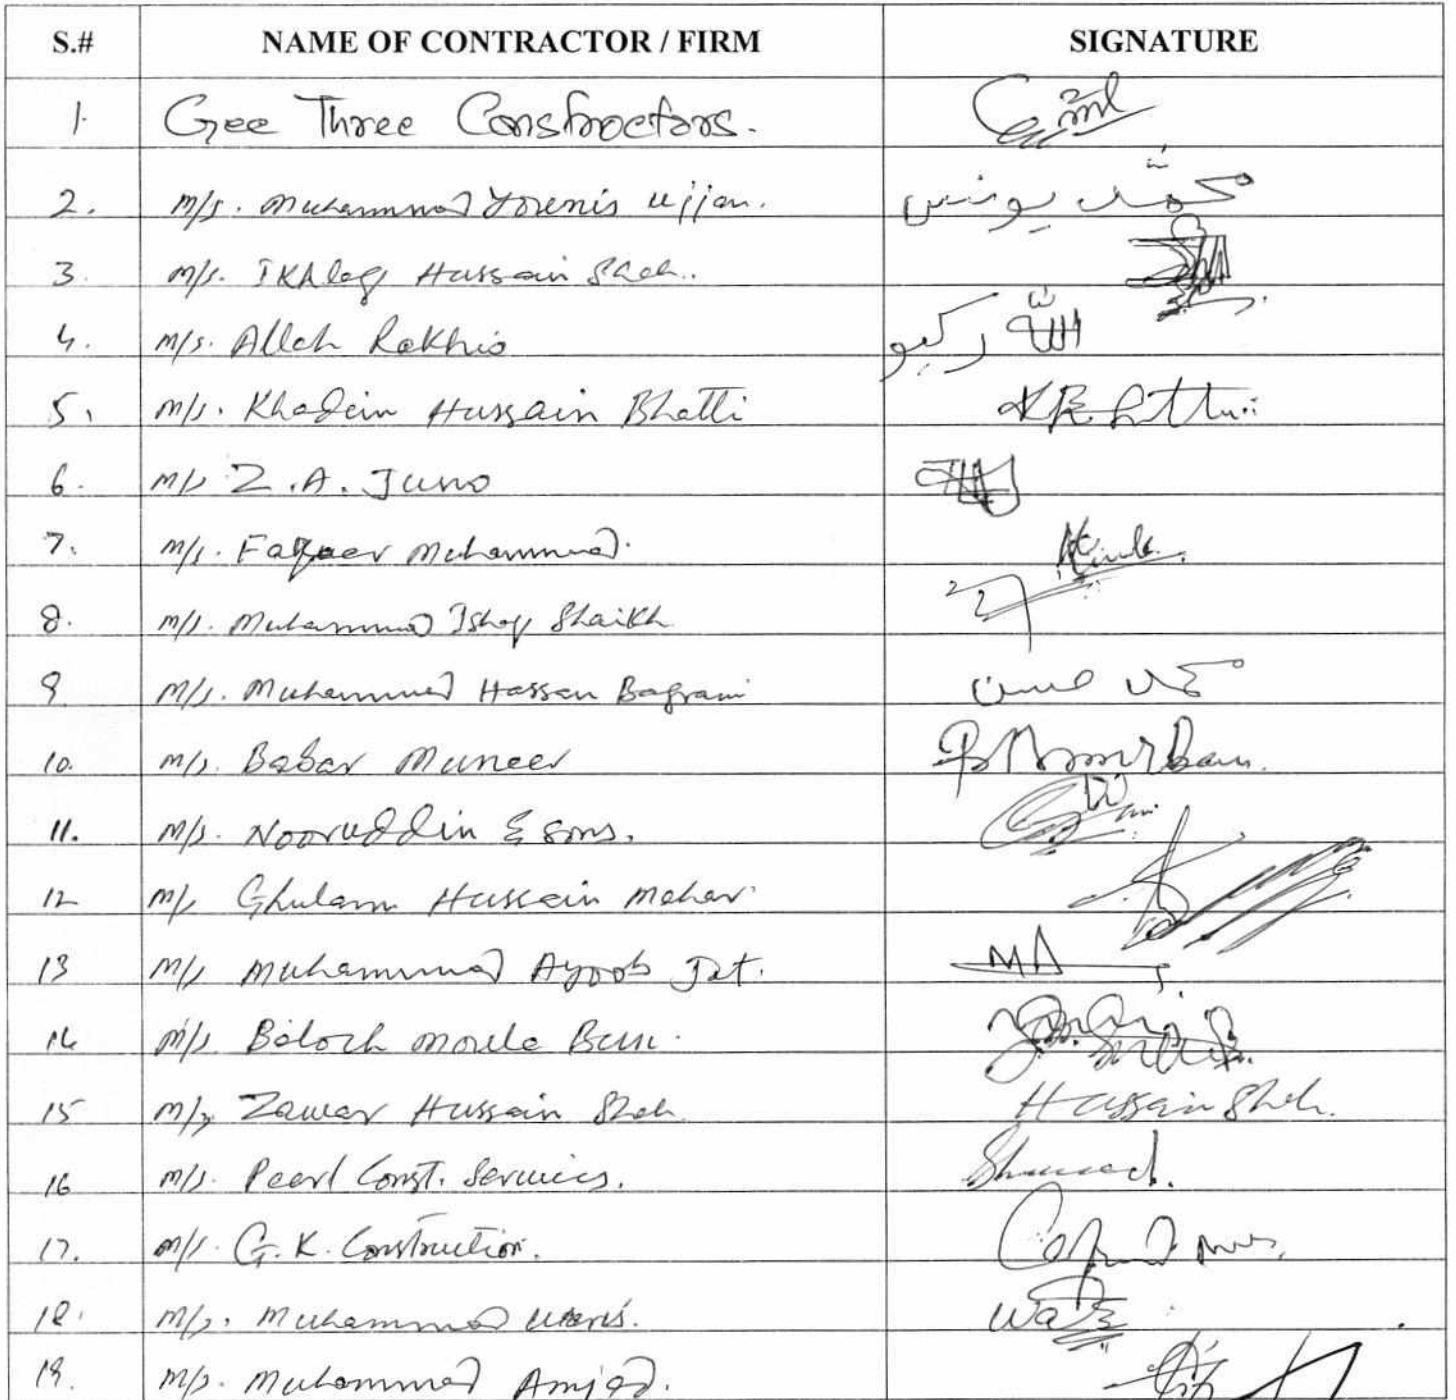 S.# NAME OF CONTRACTOR / FIRM SIGNATURE
1. Gee Three Constroctors.
2. M/s. Muhammad Younis Ujjan. محمد يونس
3. M/s. Ikhlaq Hussain Shah.
4. M/s. Allah Rakhio الله رکيو
5. M/s. Khadim Hussain Bhatti
6. M/s Z.A. Juno
7. M/s. Faqeer Muhammad.
8. M/s. Muhammad Ishaq Shaikh
9 M/s. Muhammad Hassan Bagrani محمد حسن
10. M/s. Babar Muneer
11. M/s. Nooruddin & Sons.
12 M/s Ghulam Hussain Mahar
13 M/s Muhammad Ayoob Jat. MA
14 M/s Baloch Moula Bux.
15 M/s Zawar Hussain Shah. Hussain Shah.
16 M/s. Pearl Const. Services.
17. M/s. G.K. Construction.
18. M/s. Muhammad Waris.
19. M/s. Muhammad Amjad.